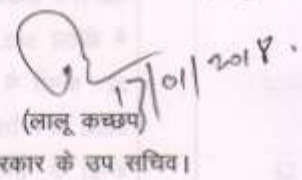 17/01/2018.
(लालू कच्छप)
रकार के उप सचिव।